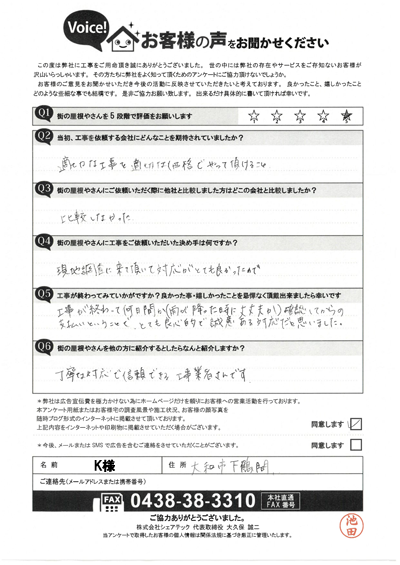 Voice!
お客様の声をお聞かせください
この度は弊社に工事をご用命頂き誠にありがとうございました。 世の中には弊社の存在やサービスをご存知ないお客様が
沢山いらっしゃいます。 その方たちに弊社をよく知って頂くためのアンケートにご協力頂けないでしょうか。
お客様のご意見をお聞かせいただき今後の活動に反映させていただきたいと考えております。 良かったこと、嬉しかったこと
どのような些細な事でも結構です。 是非ご協力お願い致します。 出来るだけ具体的に書いて頂ければ幸いです。
Q1 街の屋根やさんを5段階で評価をお願いします ☆ ☆ ☆ ☆ ☆
Q2 当初、工事を依頼する会社にどんなことを期待されていましたか？
適切な工事を適切な価格でやって頂けること
Q3 街の屋根やさんにご依頼いただく際に他社と比較しました方はどこの会社と比較しましたか？
比較しなかった
Q4 街の屋根やさんに工事をご依頼いただいた決め手は何ですか？
現地調査に来て頂いて対応がとても良かったため
Q5 工事が終わってみていかがですか？良かった事・嬉しかったことを忌憚なく頂戴出来ましたら幸いです
工事が終わって何日間か(雨が降った時に大丈夫か)確認してからの
支払いということで、とても良心的で誠意ある対応だと思いました。
Q6 街の屋根やさんを他の方に紹介するとしたらなんと紹介しますか？
丁寧な対応で信頼できる工事業者さんです
＊弊社は広告宣伝費を極力かけない為にホームページだけを頼りにお客様への営業活動を行っております。
本アンケート用紙またはお客様宅の調査風景や施工状況、お客様の顔写真を
随時ブログ形式のインターネットに掲載させて頂いております。
上記内容をインターネットや印刷物に掲載させていただく場合がございます。 同意します
＊今後、メールまたは SMS で広告を含むご連絡をさせていただくことがございます。 同意します
名 前 K様 住 所 大和市下鶴間
ご連絡先(メールアドレスまたは携帯番号)
FAX 0438-38-3310 本社直通 FAX 番号
ご協力ありがとうございました。
株式会社シェアテック 代表取締役 大久保 誠二
当アンケートで取得したお客様の個人情報は関係法規に基づき厳正に管理いたします。
池田